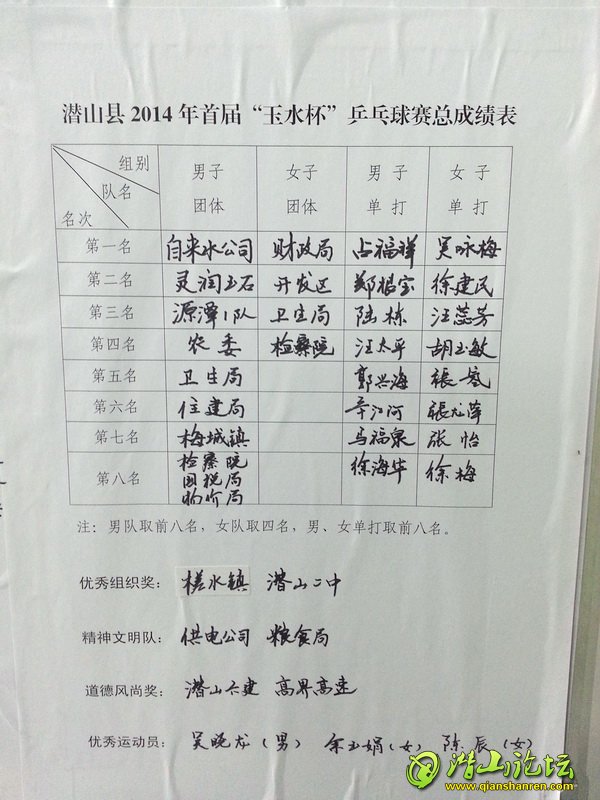 潜山县2014年首届“玉水杯”乒乓球赛总成绩表
组别 队名 名次 男子团体 女子团体 男子单打 女子单打
第一名 自来水公司 财政局 占福祥 吴咏梅
第二名 灵润玉石 开发区 郑根宝 徐建民
第三名 源潭1队 卫生局 陆栋 汪蕊芳
第四名 农委 检察院 汪太平 胡玉敏
第五名 卫生局 郭兴海 張
第六名 住建局 江河 張龙萍
第七名 梅城镇 马福泉 张怡
第八名 检察院 国税局 物价局 徐海华 徐梅
注：男队取前八名，女队取四名，男、女单打取前八名。
优秀组织奖： 槎水镇 潜山二中
精神文明队： 供电公司 粮食局
道德风尚奖： 潜山公建 高界高速
优秀运动员： 吴晓龙（男） 余玉娟（女） 陈辰（女）
潜山论坛
www.qianshanren.com